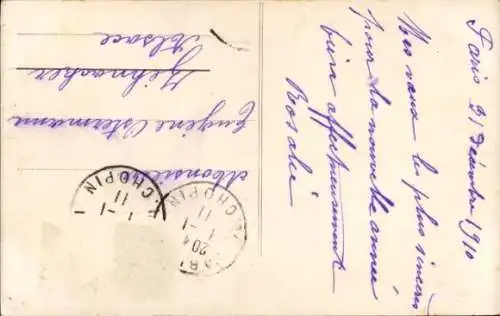 Paris 31 Décembre 1910
Mes vœux les plus sincères
pour la nouvelle année
bien affectueusement
Rosalie
Monsieur
Eugène Ostermann
Alsace
CHOPIN
1-1
11
CHOPIN
1-1
11